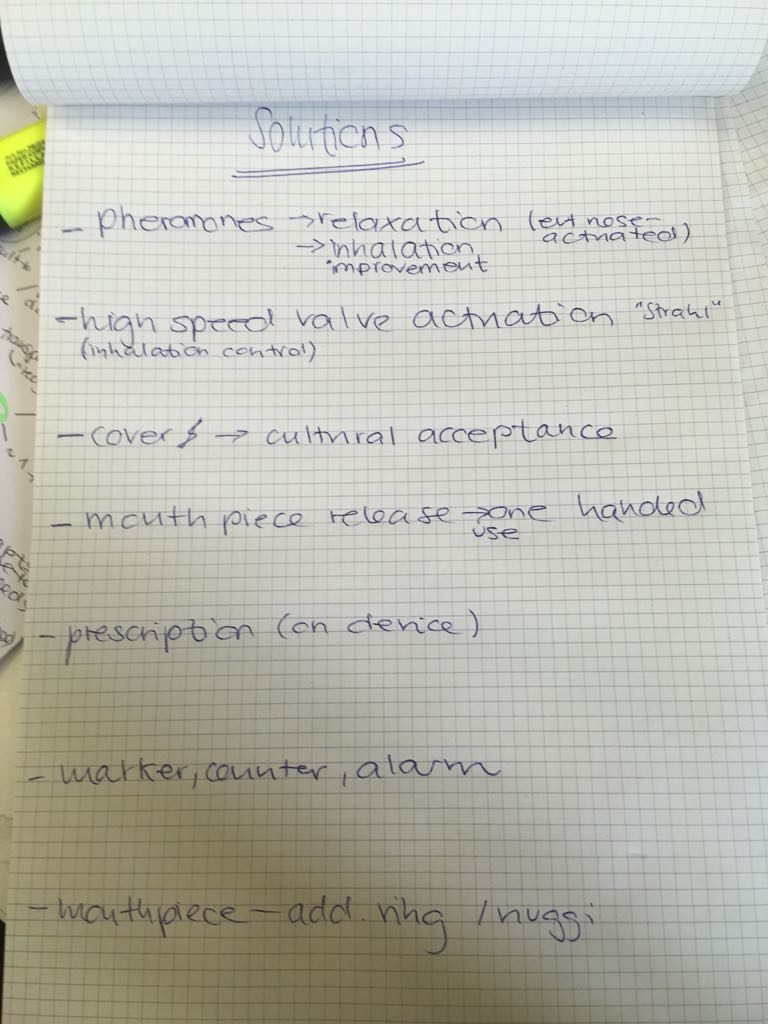 Solutions
- pheromones → relaxation (evt nose-
actuated)
→ inhalation
improvement
- high speed valve actuation "Strahl"
(inhalation control)
- cover → cultural acceptance
- mouth piece release → one handed
use
- prescription (on device)
- marker, counter, alarm
- mouthpiece - add. ring / nuggi